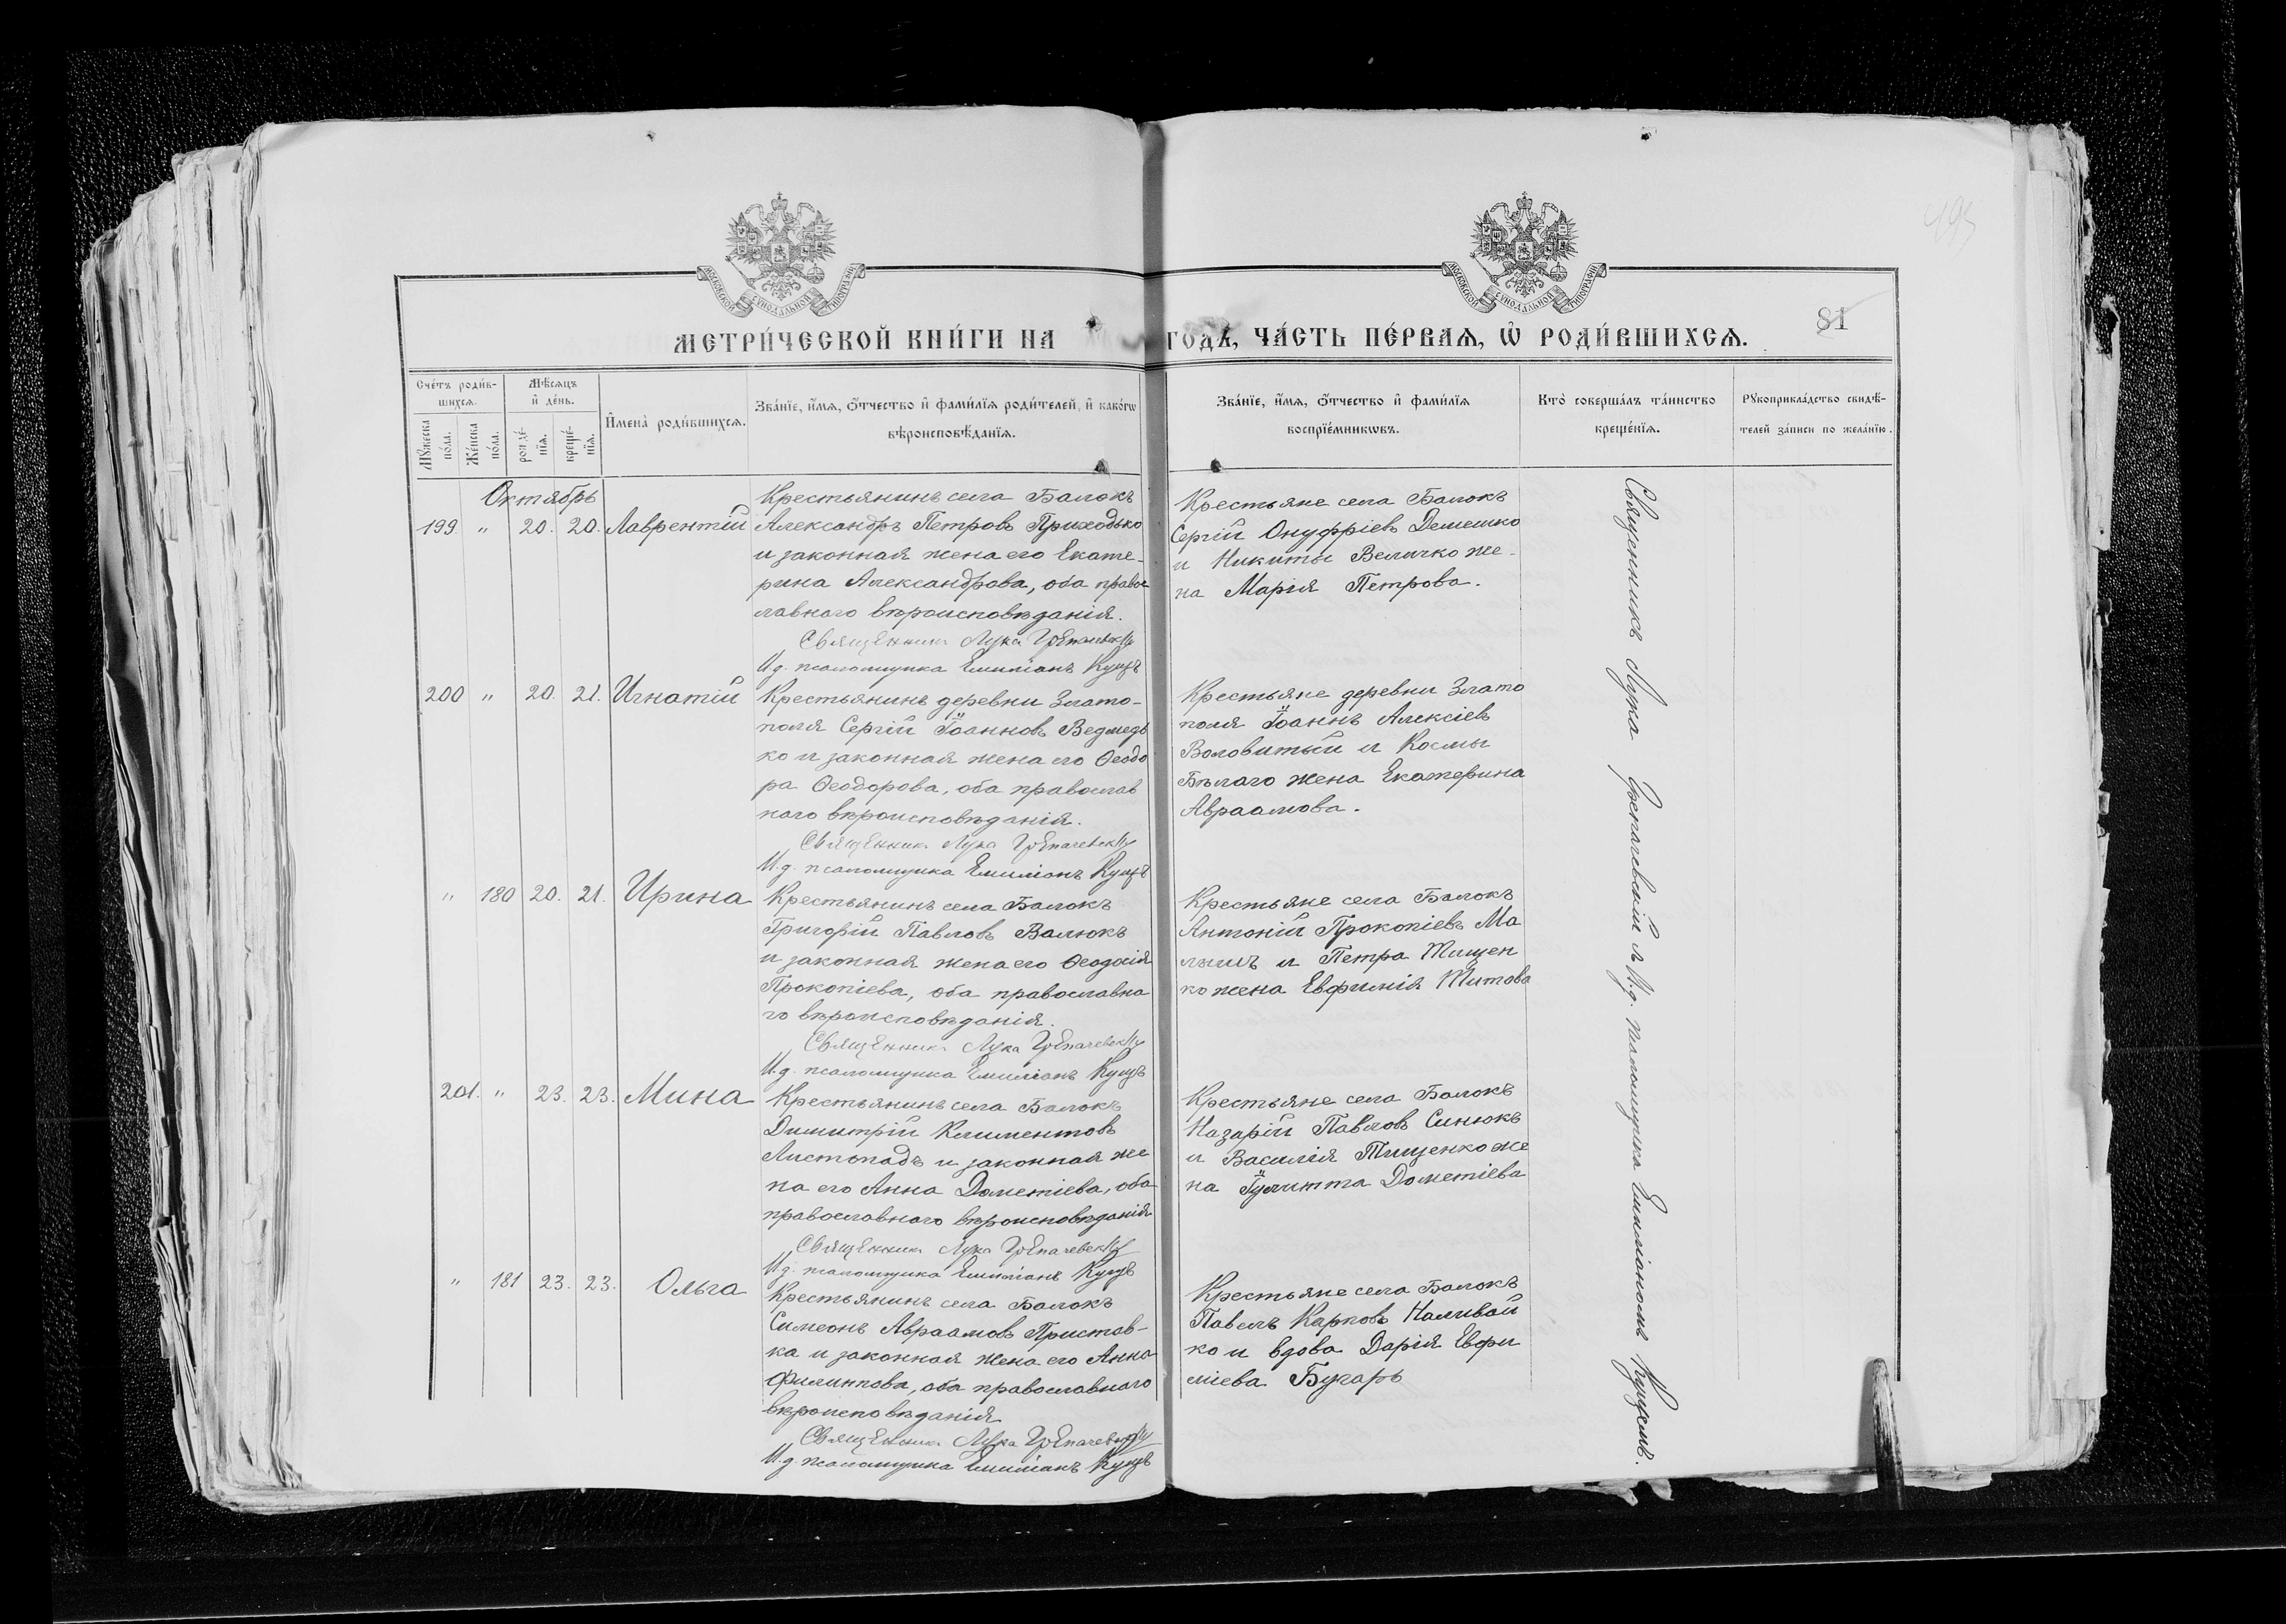 МОСКОВСКОЙ СѴНОДАЛЬНОЙ ТИПОГРАФІИ
МОСКОВСКОЙ СѴНОДАЛЬНОЙ ТИПОГРАФІИ
МЕТРИ́ЧЕСКОЙ КНИ́ГИ НА ГОДЪ, ЧА́СТЬ ПЕ́РВАѦ, Ѿ РОДИ́ВШИХСѦ.
81
Сче́тъ роди́в-
шихсѧ.
Мꙋ́жеска по́ла.
Же́нска по́ла.
Мѣ́сѧцъ
и҆ де́нь.
рожде́-нїѧ.
креще́-нїѧ.
И҆мена̀ роди́вшихсѧ.
Зва́нїе, и҆́мѧ, ѻ҆́тчество и҆ фами́лїѧ роди́телей, и҆ како́гѡ
вѣроисповѣ́данїѧ.
Зва́нїе, и҆́мѧ, ѻ҆́тчество и҆ фами́лїѧ
воспрїе́мникѡвъ.
Кто̀ соверша́лъ та́инство
креще́нїѧ.
Рꙋкоприкла́дство свидѣ́-
телей за́писи по жела́нїю.
Октябрь
199. " 20. 20. Лаврентій
Крестьянинъ села Балокъ
Александръ Петровъ Приходько
и законная жена его Екате-
рина Александрова, оба право
лавнаго вѣроисповѣданія.
Священникъ Лука
И.д. псаломщика Емиліанъ Кущъ
Крестьяне села Балокъ
Сергій Онуфріевъ Демешко
и Никиты Величко же-
на Марія Петрова.
200 " 20. 21. Игнатій
Крестьянинъ деревни Злато-
поля Сергій Іоанновъ Ведмедь
ко и законная жена его Ѳеодо
ра Ѳеодорова, оба православ
наго вѣроисповѣданія.
Священникъ Лука
И.д. псаломщика Емиліанъ Кущъ
Крестьяне деревни Злато
поля Іоаннъ Алексіевъ
Воловитый и Космы
Бѣлаго жена Екатерина
Авраамова.
" 180 20. 21. Ирина
Крестьянинъ села Балокъ
Григорій Павловъ Валюкъ
и законная жена его Ѳеодосія
Прокопіева, оба православна
го вѣроисповѣданія.
Священникъ Лука
И.д. псаломщика Емиліанъ Кущъ
Крестьяне села Балокъ
Антоній Прокопіевъ Ма
лышъ и Петра Тищен
ко жена Евфимія Титова
201. " 23. 23. Мина
Крестьянинъ села Балокъ
Димитрій Климентовъ
Листопадъ и законная же
на его Анна Дометіева, оба
православнаго вѣроисповѣданія
Священникъ Лука
И.д. псаломщика Емиліанъ Кущъ
Крестьяне села Балокъ
Назарій Павловъ Синюкъ
и Василія Тищенко же
на Іулитта Дометіева
" 181 23. 23. Ольга
Крестьянинъ села Балокъ
Симеонъ Авраамовъ Пристав-
ка и законная жена его Анна
Филиппова, оба православнаго
вѣроисповѣданія
Священникъ Лука
И.д. псаломщика Емиліанъ Кущъ
Крестьяне села Балокъ
Павелъ Карповъ Наливай
ко и вдова Дарія Евфи
міева Бугаръ
Священникъ Лука и И.д. псаломщика Емиліаномъ Кущемъ.